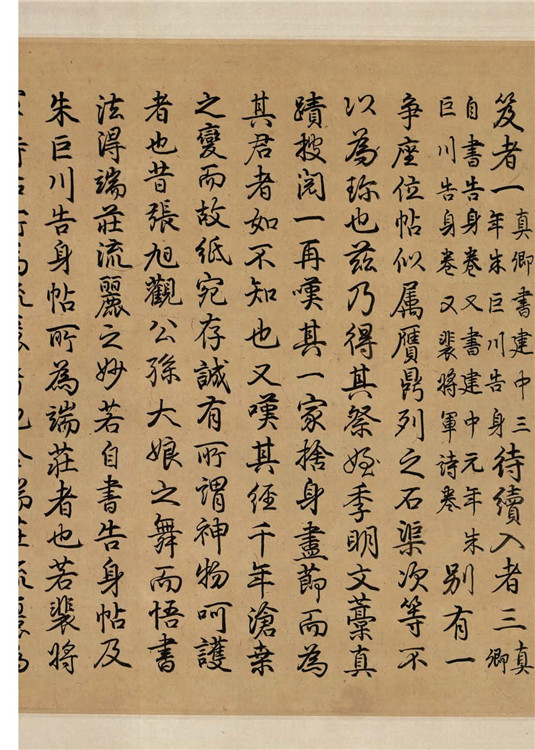 笈者一真卿書建中三年朱巨川告身待續入者三真卿
自書告身卷又書建中元年朱巨川告身卷又裴將軍詩卷別有一
爭座位帖似属贋鼎列之石渠次等不
以為珎也茲乃得其祭姪季明文藁真
蹟披閱一再嘆其一家捨身盡節而為
其君者如不知也又嘆其經千年滄桑
之變而故紙宛存誠有所謂神物呵護
者也昔張旭觀公孫大娘之舞而悟書
法得端莊流麗之妙若自書告身帖及
朱巨川告身帖所為端莊者也若裴將